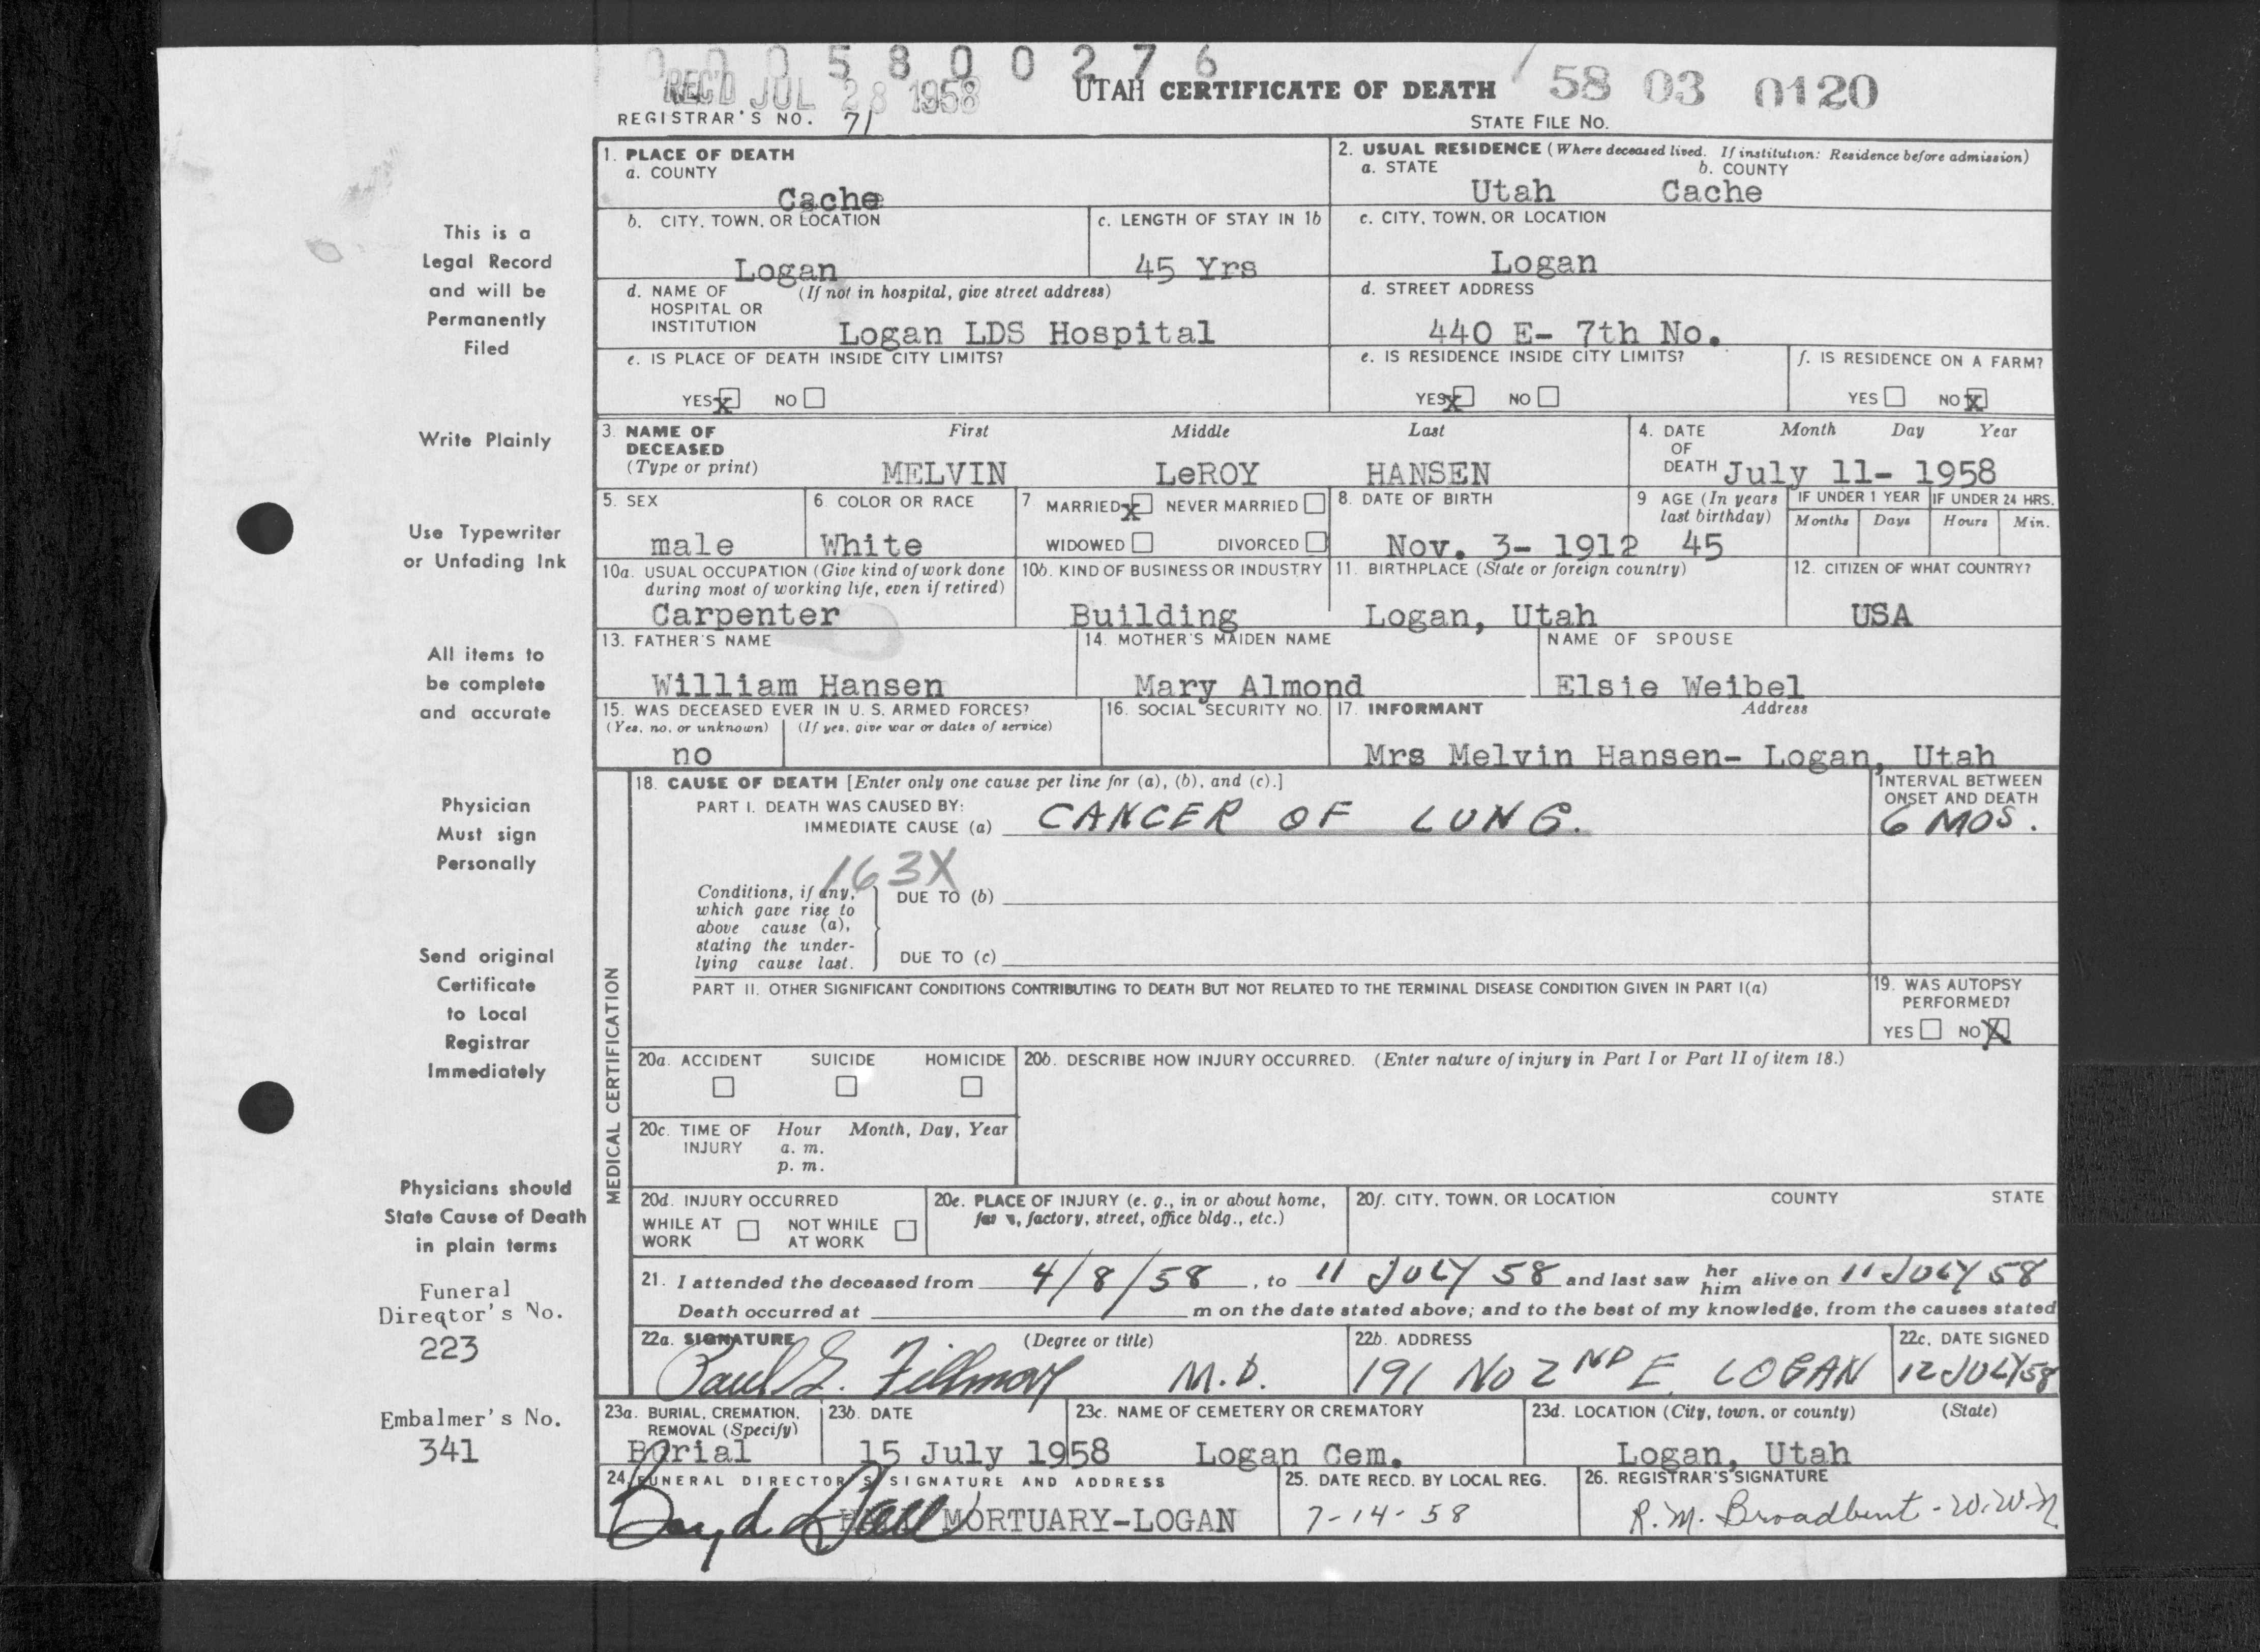 0 0 0 5 8 0 0 2 7 6
REC'D JUL 28 1958
UTAH CERTIFICATE OF DEATH
58 03 0120
REGISTRAR'S NO. 71
STATE FILE No.
1. PLACE OF DEATH
a. COUNTY
Cache
2. USUAL RESIDENCE (Where deceased lived. If institution: Residence before admission)
a. STATE
b. COUNTY
Utah Cache
b. CITY, TOWN, OR LOCATION
Logan
c. LENGTH OF STAY IN 1b
45 Yrs
c. CITY, TOWN, OR LOCATION
Logan
d. NAME OF HOSPITAL OR INSTITUTION
(If not in hospital, give street address)
Logan LDS Hospital
d. STREET ADDRESS
440 E- 7th No.
e. IS PLACE OF DEATH INSIDE CITY LIMITS?
YES X NO
e. IS RESIDENCE INSIDE CITY LIMITS?
YES X NO
f. IS RESIDENCE ON A FARM?
YES NO X
3. NAME OF DECEASED
(Type or print)
First Middle Last
MELVIN LeROY HANSEN
4. DATE OF DEATH
Month Day Year
July 11- 1958
5. SEX
male
6. COLOR OR RACE
White
7 MARRIED X NEVER MARRIED
WIDOWED DIVORCED
8. DATE OF BIRTH
Nov. 3- 1912
9 AGE (In years last birthday)
45
IF UNDER 1 YEAR
Months Days
IF UNDER 24 HRS.
Hours Min.
10a. USUAL OCCUPATION (Give kind of work done
during most of working life, even if retired)
Carpenter
10b. KIND OF BUSINESS OR INDUSTRY
Building
11. BIRTHPLACE (State or foreign country)
Logan, Utah
12. CITIZEN OF WHAT COUNTRY?
USA
13. FATHER'S NAME
William Hansen
14. MOTHER'S MAIDEN NAME
Mary Almond
NAME OF SPOUSE
Elsie Weibel
15. WAS DECEASED EVER IN U. S. ARMED FORCES?
(Yes, no, or unknown) (If yes, give war or dates of service)
no
16. SOCIAL SECURITY NO.
17. INFORMANT Address
Mrs Melvin Hansen- Logan, Utah
MEDICAL CERTIFICATION
18. CAUSE OF DEATH [Enter only one cause per line for (a), (b), and (c).]
PART I. DEATH WAS CAUSED BY:
IMMEDIATE CAUSE (a) CANCER OF LUNG.
INTERVAL BETWEEN
ONSET AND DEATH
6 MOS.
163X
Conditions, if any,
which gave rise to
above cause (a),
stating the under-
lying cause last.
DUE TO (b)
DUE TO (c)
PART II. OTHER SIGNIFICANT CONDITIONS CONTRIBUTING TO DEATH BUT NOT RELATED TO THE TERMINAL DISEASE CONDITION GIVEN IN PART I(a)
19. WAS AUTOPSY
PERFORMED?
YES NO X
20a. ACCIDENT SUICIDE HOMICIDE
20b. DESCRIBE HOW INJURY OCCURRED. (Enter nature of injury in Part I or Part II of item 18.)
20c. TIME OF INJURY
Hour Month, Day, Year
a. m.
p. m.
20d. INJURY OCCURRED
WHILE AT WORK
NOT WHILE AT WORK
20e. PLACE OF INJURY (e. g., in or about home,
factory, street, office bldg., etc.)
20f. CITY, TOWN, OR LOCATION COUNTY STATE
21. I attended the deceased from 4/8/58, to 11 JULY 58 and last saw her him alive on 11 JULY 58
Death occurred at m on the date stated above; and to the best of my knowledge, from the causes stated
22a. SIGNATURE (Degree or title)
Paul G. Fillmor M.D.
22b. ADDRESS
191 No 2ND E. LOGAN
22c. DATE SIGNED
12 JULY 58
23a. BURIAL, CREMATION,
REMOVAL (Specify)
Burial
23b. DATE
15 July 1958
23c. NAME OF CEMETERY OR CREMATORY
Logan Cem.
23d. LOCATION (City, town, or county) (State)
Logan, Utah
24. FUNERAL DIRECTOR'S SIGNATURE AND ADDRESS
Boyd Hall MORTUARY-LOGAN
25. DATE RECD. BY LOCAL REG.
7-14-58
26. REGISTRAR'S SIGNATURE
R.M. Broadbent - W.W.N
This is a
Legal Record
and will be
Permanently
Filed
Write Plainly
Use Typewriter
or Unfading Ink
All items to
be complete
and accurate
Physician
Must sign
Personally
Send original
Certificate
to Local
Registrar
Immediately
Physicians should
State Cause of Death
in plain terms
Funeral
Director's No.
223
Embalmer's No.
341